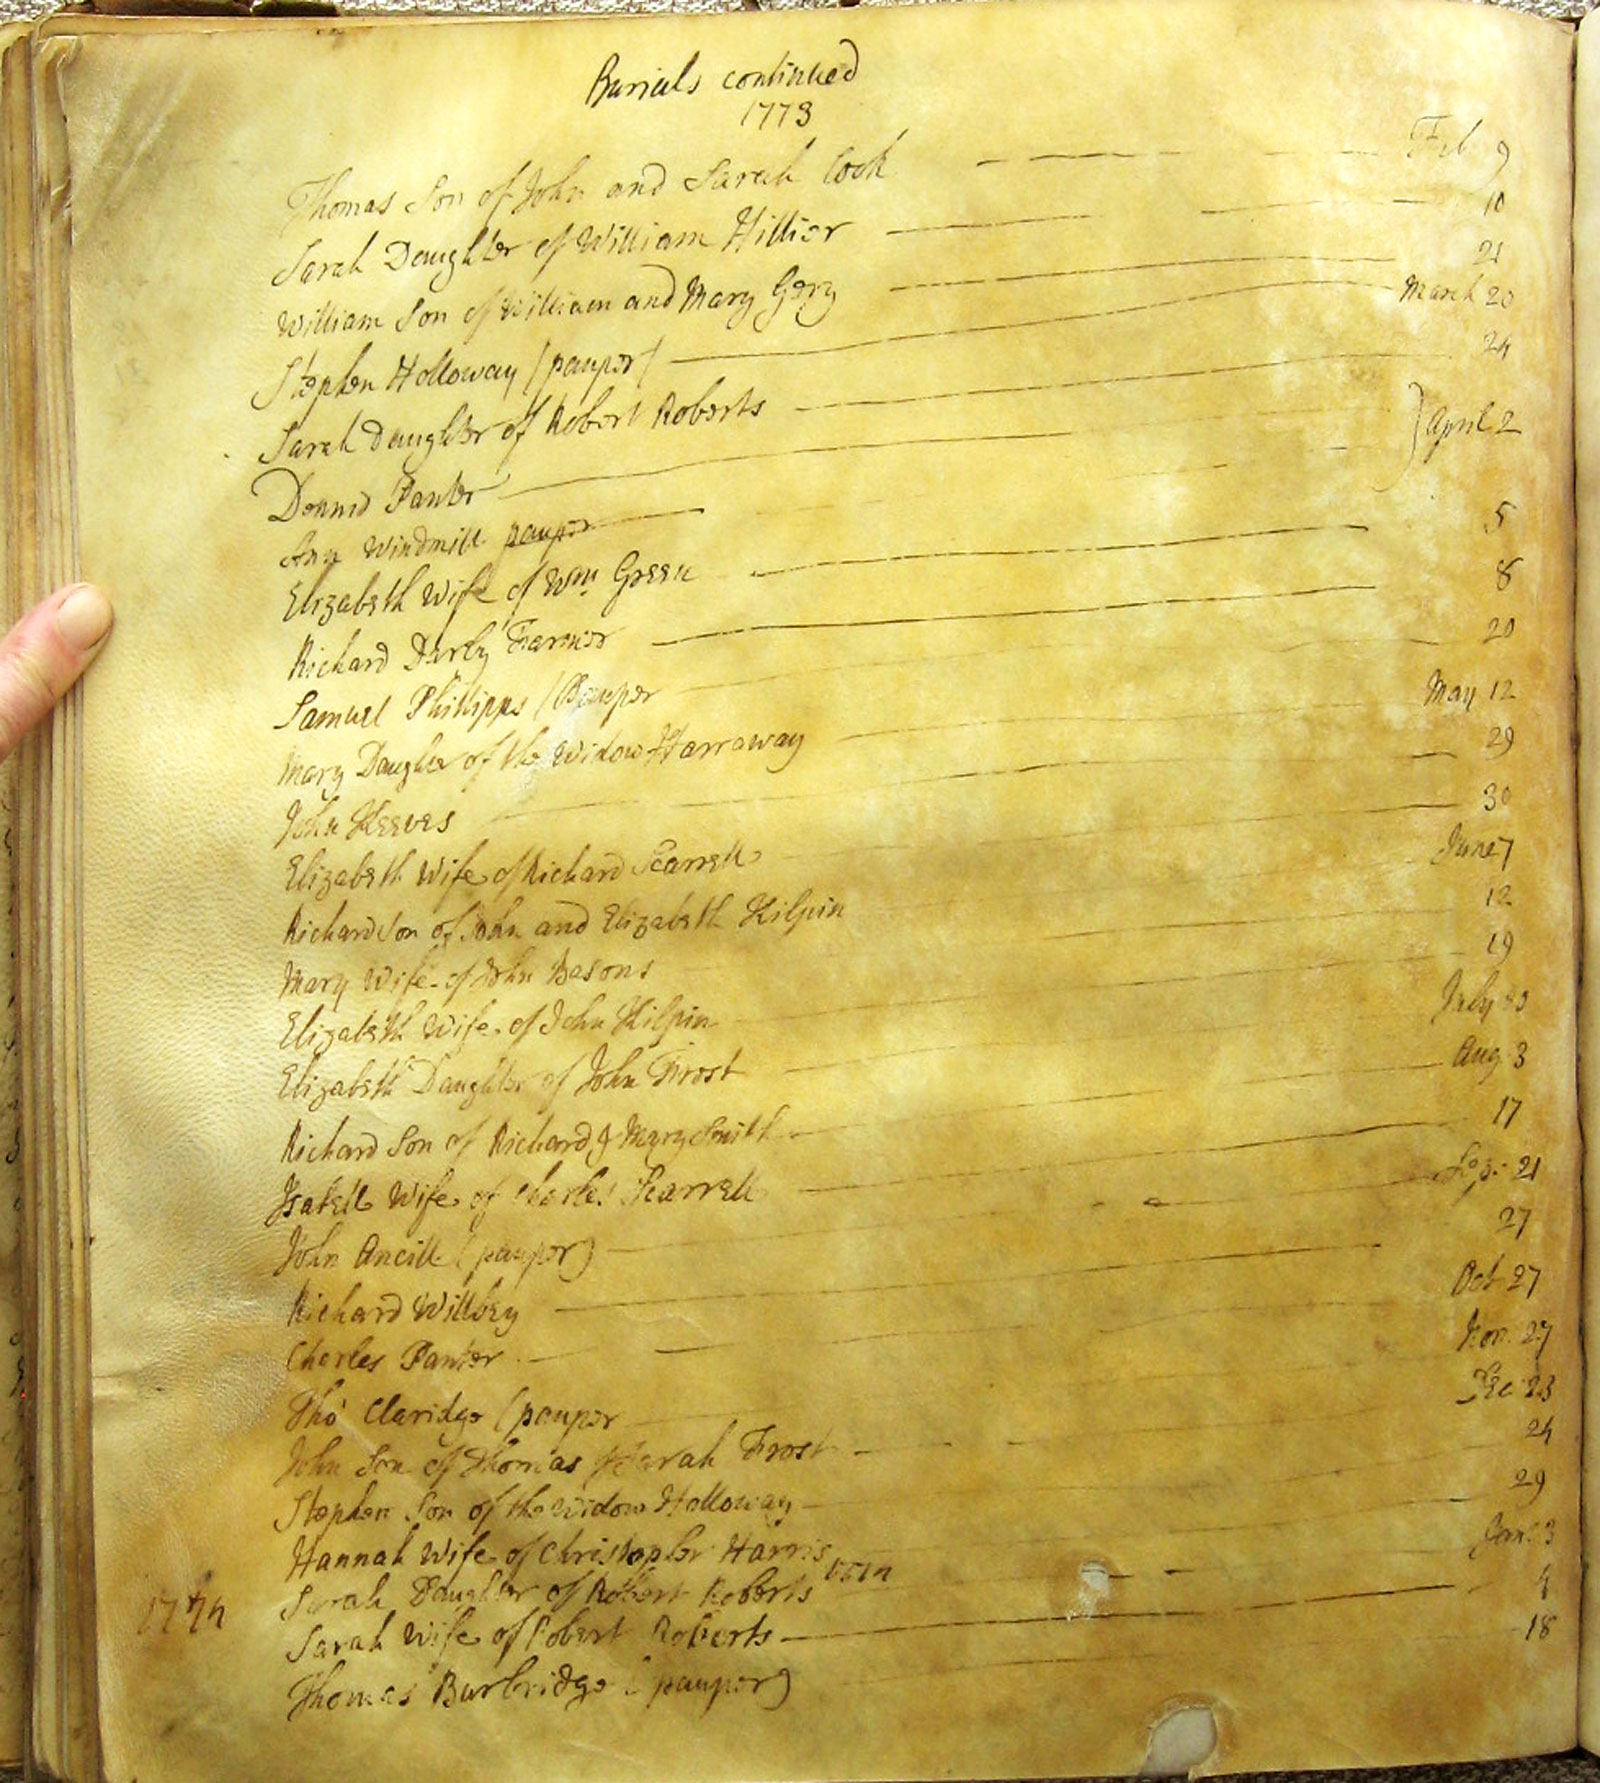 Burials continued
1773
Thomas Son of John and Sarah Cook Feb 9
Sarah Daughter of William Hillier 10
William Son of William and Mary Gery 21
Stephen Holloway (pauper) March 20
Sarah Daughter of Robert Roberts 24
Dennis Panter
Ann Windmill pauper } April 2
Elizabeth Wife of Wm. Green 5
Richard Darby Farmer 8
Samuel Phillipps (Pauper 20
Mary Daughter of the Widow Harroway May 12
John Keeves 29
Elizabeth Wife of Richard Scarrell 30
Richard Son of John and Elizabeth Kilpin June 7
Mary Wife of John Basons 12
Elizabeth Wife of John Kilpin 19
Elizabeth Daughter of John Frost July
Richard Son of Richard & Mary Smith Aug 3
Isabell Wife of Charles Scarrell 17
John Ancill (pauper) Sep: 21
Richard Willbey 27
Charles Panter Oct 27
Tho' Claridge (pauper Nov. 27
John Son of Thomas & Sarah Frost Dec 23
Stephen Son of the Widow Holloway 24
Hannah Wife of Christopher Harris 29
1774 Sarah Daughter of Robert Roberts Jan: 3
Sarah Wife of Robert Roberts 4
Thomas Burbridge (pauper) 18